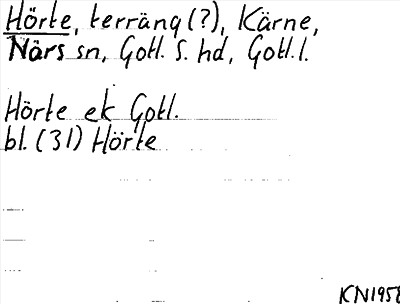 Hörte, terräng (?), Kärne,
Närs sn, Gotl. S. hd, Gotl. l.
Hörte ek Gotl.
bl. (31) Hörte
KN1958